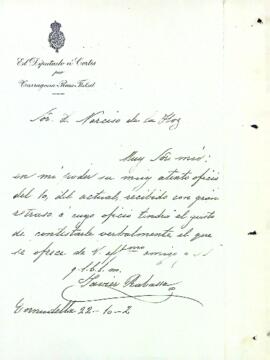 El Diputado á Cortes
por
Tarragona-Reus-Falset
Sr. D. Narciso de la Hoz
Muy Sr. mío:
en mi poder su muy atento oficio
del 10, del actual, recibido con gran
retraso á cuyo oficio tendré el gusto
de contestarle verbalmente el que
se ofrece de V. af amigo
q.l.b.l.m.
Javier Rabassa
Cornudella 22-10-2